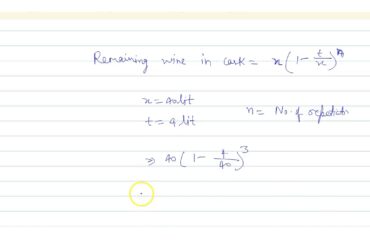 Remaining wine in cask = x(1 - t/x)^n
x = 40 lit
t = 4 lit
n = No. of repetition
⇒ 40(1 - 4/40)^3